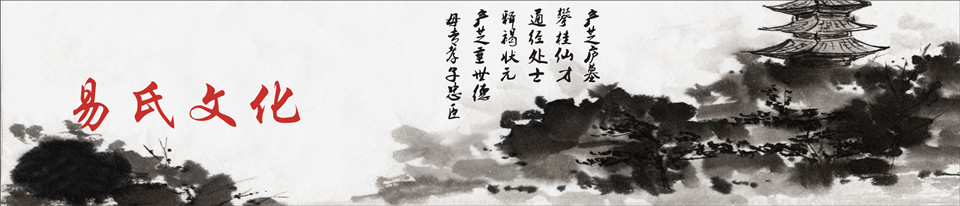 易氏文化
产芝庐墓
攀桂仙才
通经处士
释褐状元
产芝重世德
孝子忠臣